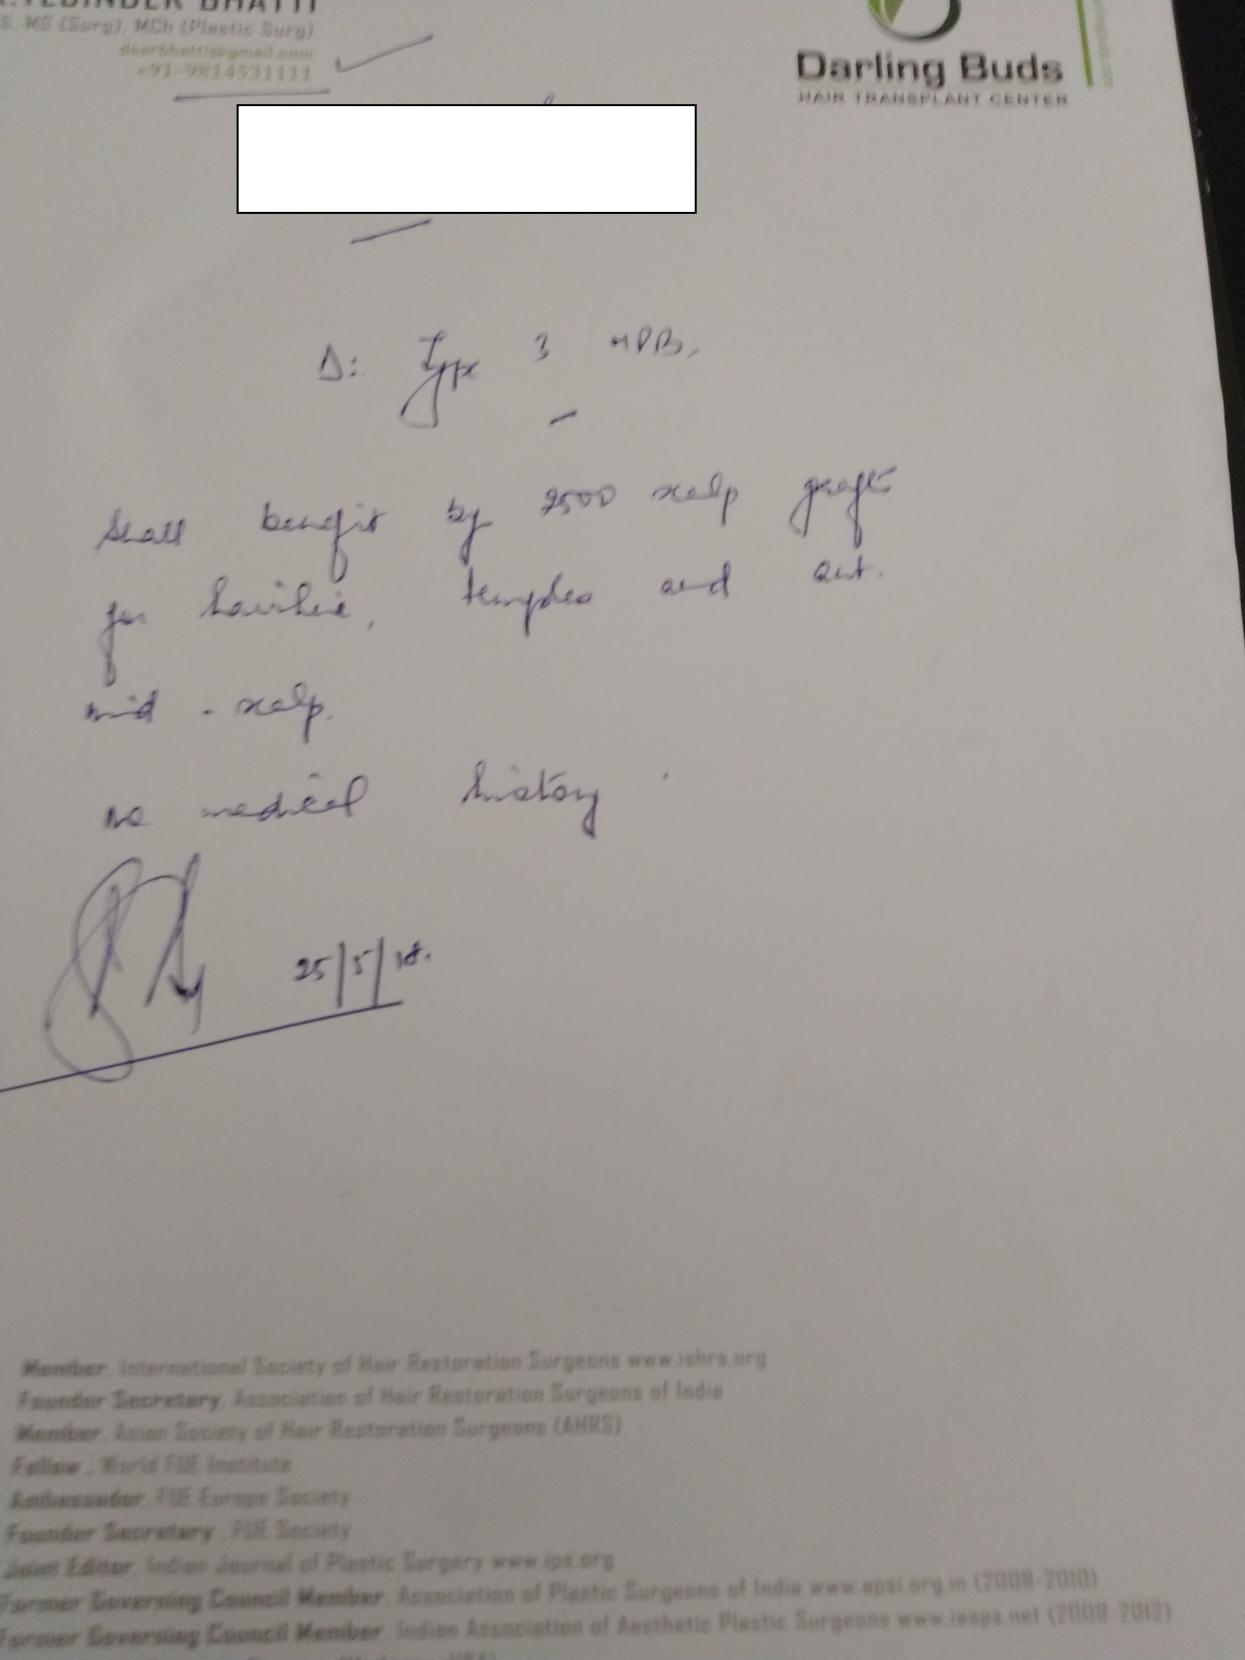 BHATTI
MS (Surg), MCh (Plastic Surg)
+91-9814531111
Darling Buds
HAIR TRANSPLANT CENTER
Δ: Type 3 MPB,
Shall benefit by 2500 scalp grafts
for hairline, temples and ant.
mid - scalp.
no medical history.
25/5/18.
Member, International Society of Hair Restoration Surgeons www.ishrs.org
Founder Secretary, Association of Hair Restoration Surgeons of India
Member, Asian Society of Hair Restoration Surgeons (AHRS)
Fellow, World FUE Institute
Ambassador, FUE Europe Society
Founder Secretary, FUE Society
Joint Editor, Indian Journal of Plastic Surgery www.ijps.org
Former Governing Council Member, Association of Plastic Surgeons of India www.apsi.org.in (2008-2010)
Former Governing Council Member, Indian Association of Aesthetic Plastic Surgeons www.iaaps.net (2008-2012)